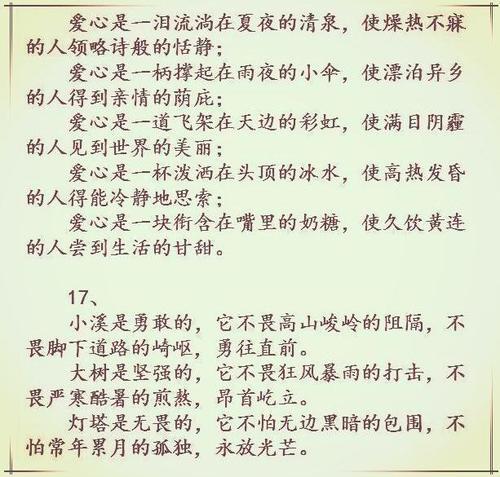 爱心是一泪流淌在夏夜的清泉，使燥热不寐
的人领略诗般的恬静；
爱心是一柄撑起在雨夜的小伞，使漂泊异乡
的人得到亲情的荫庇；
爱心是一道飞架在天边的彩虹，使满目阴霾
的人见到世界的美丽；
爱心是一杯泼洒在头顶的冰水，使高热发昏
的人得能冷静地思索；
爱心是一块衔含在嘴里的奶糖，使久饮黄连
的人尝到生活的甘甜。
17、
小溪是勇敢的，它不畏高山峻岭的阻隔，不
畏脚下道路的崎岖，勇往直前。
大树是坚强的，它不畏狂风暴雨的打击，不
畏严寒酷署的煎熬，昂首屹立。
灯塔是无畏的，它不怕无边黑暗的包围，不
怕常年累月的孤独，永放光芒。